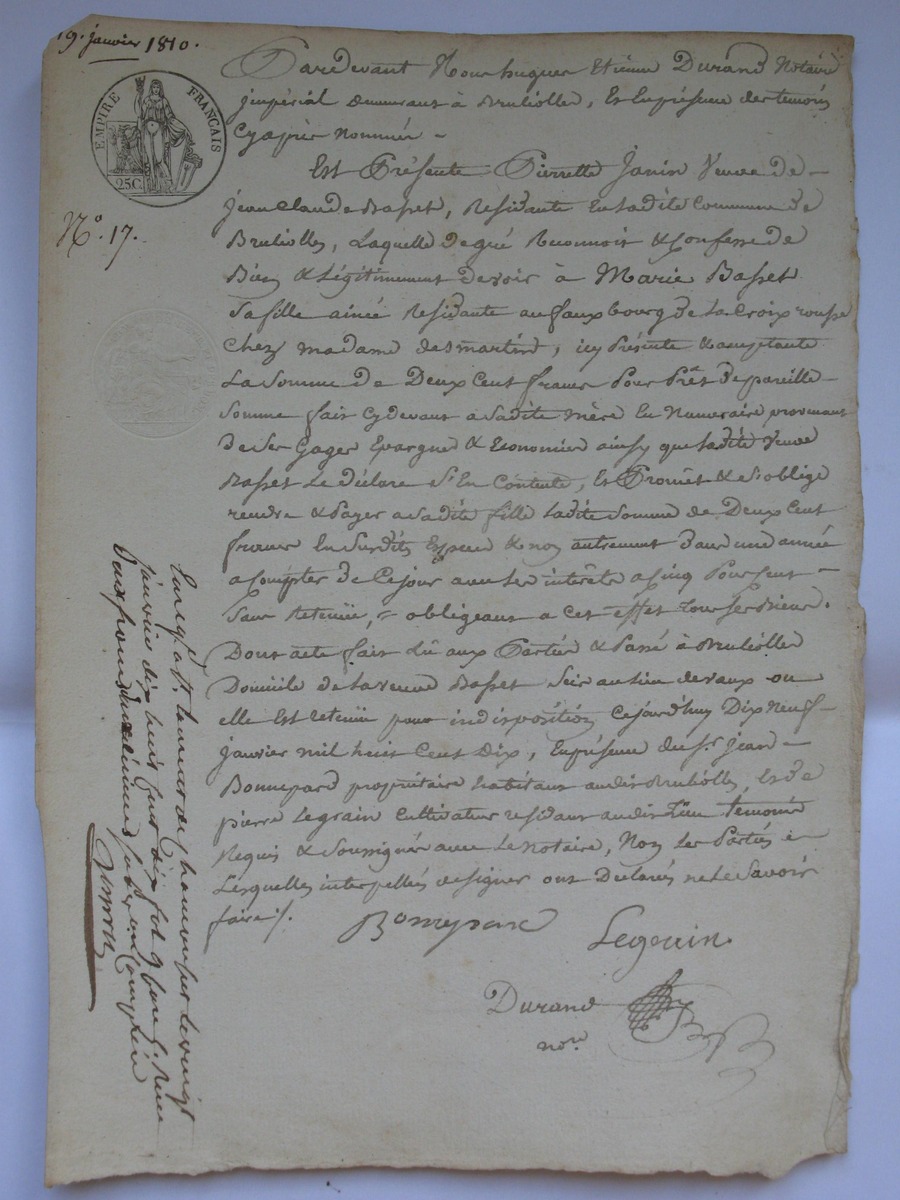 19. janvier 1810.
EMPIRE FRANÇAIS
25C.
N.º 17.
Pardevant Nous hugues Etienne Durand Notaire
jmpérial demeurant à Brulliolles, Et En présence des temoins
Cyaprès Nommés -
Est Présente Pierrette Janin Veuve de -
jean Claude Basset, Residante En ladite Commune de
Brulliolles, Laquelle de gré Reconnoit & Confesse de
Bien & Légitimement devoir à Marie Basset
Sa fille ainée Residante au faux bourg de La Croix rousse
Chez madame desmartins, icy Présente & acceptante
La Somme de Deux Cent francs Pour Prêt de pareille -
Somme fait Cydevant a Sadite mère En Numeraire provenant
de Ses Gages Epargne & Economies ainsy que ladite Veuve
Basset Le déclare S'En Contente, Et Promet & s'oblige
rendre & Payer a Sadite fille ladite Somme de Deux Cent
francs En Susdites Espece & non autrement dans une année
a Compter de Ce jour avec les interêts a Cinq Pour Cent -
Sans Retenüe, obligeant a cet effet tous ses Biens.
Dont acte fait lû aux Parties & Passé à Brulliolles
Domicile de la veuve Basset Sis au lieu de vaux ou
elle Est retenüe pour indisposition Cejourd'huy Dix Neuf -
janvier mil huit Cent Dix, En présence du Sr. jean -
Bonnepard propriétaire habitant audit Brulliolles, Et de
pierre Legrain Cultivateur residant audit Lieu temoins
Requis & Soussignés avec Le Notaire, Non les Parties -
Lesquelles interpellés de signer ont Déclarés ne le Savoir
faire ./.
Bonnepard
Legrain
Durand
nore
Enregist. le vingt
janvier dix huit cent dix fol